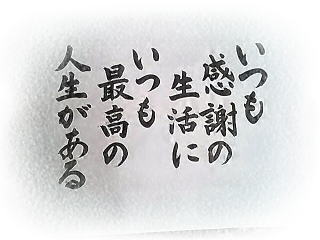 いつも
感謝の
生活に
いつも
最高の
人生がある